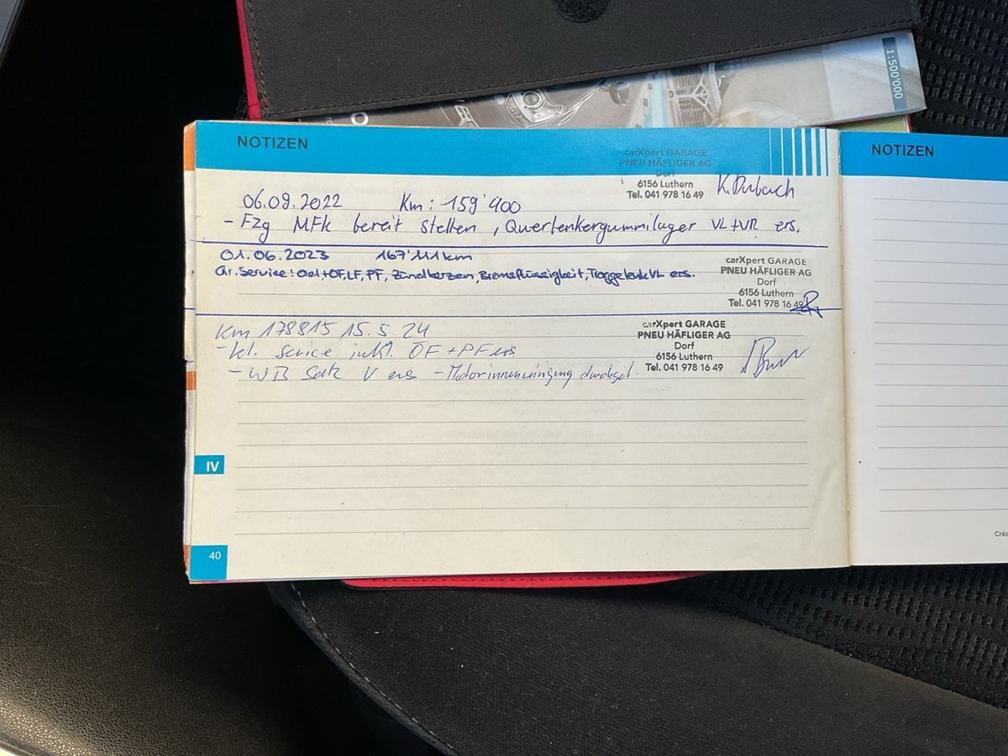 1:500'000
NOTIZEN
NOTIZEN
carXpert GARAGE
PNEU HÄFLIGER AG
Dorf
6156 Luthern
Tel. 041 978 16 49
06.09.2022 Km: 159'400
- Fzg MFK bereit stellen, Querlenkergummilager VL+VR ers.
01.06.2023 167'111km
Gr. Service: Oel+OF, LF, PF, Zündkerzen, Bremsflüssigkeit, Traggelenk VL ers.
carXpert GARAGE
PNEU HÄFLIGER AG
Dorf
6156 Luthern
Tel. 041 978 16 49
Km 178815 15.5.24
- kl. Service inkl. ÖF + PF ers
- WB Satz V ers - Motorinnenreinigung durchgef.
carXpert GARAGE
PNEU HÄFLIGER AG
Dorf
6156 Luthern
Tel. 041 978 16 49
IV
40